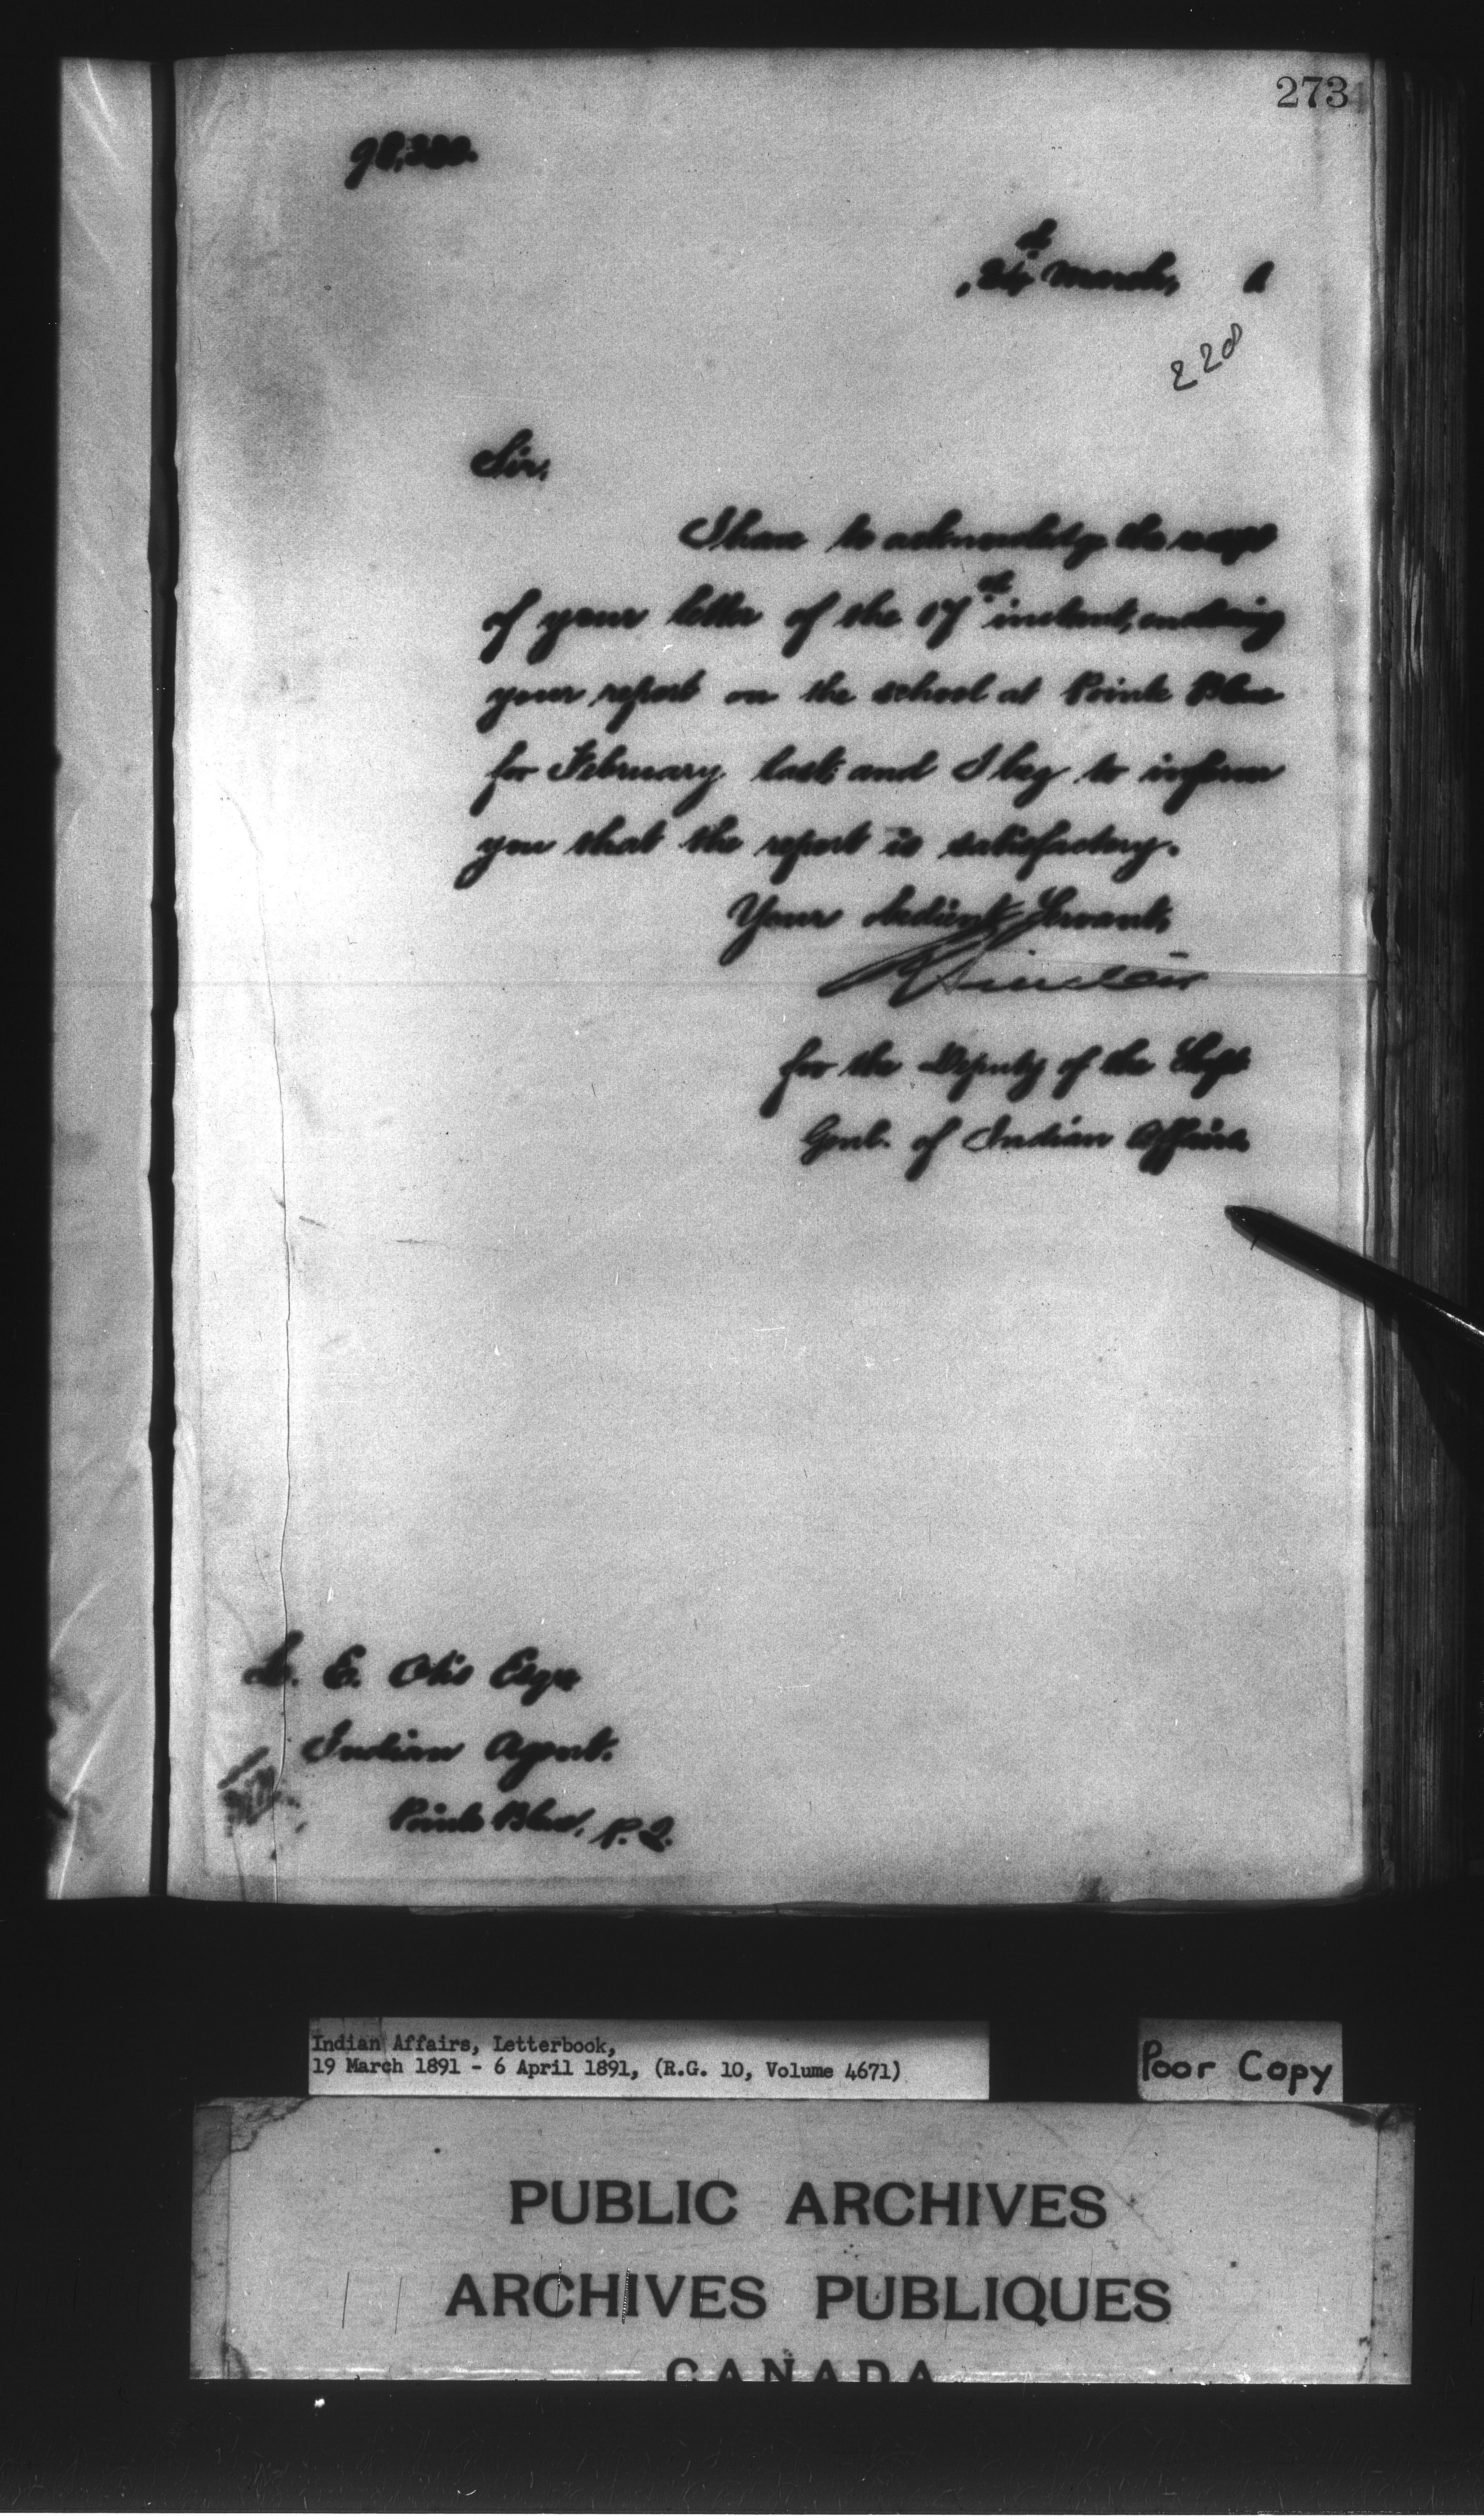 273
24th March, 1
220
Sir,
I have to acknowledge the receipt
of your letter of the 17th instant, enclosing
your report on the school at Pointe Bleue
for February last and I beg to inform
you that the report is satisfactory.
Your obedient Servant,
Sinclair
for the Deputy of the Supt
Genl. of Indian Affairs
L. E. Otis Esqr
Indian Agent.
Pointe Bleue, P.Q.
Indian Affairs, Letterbook,
19 March 1891 - 6 April 1891, (R.G. 10, Volume 4671)
Poor Copy
PUBLIC ARCHIVES
ARCHIVES PUBLIQUES
CANADA